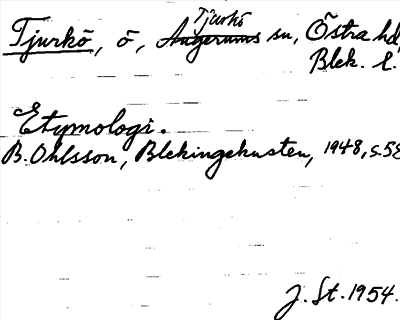 Tjurkö
Tjurkö, ö, Augerums sn, Östra hd,
Blek. l.
Etymologi.
B. Ohlsson, Blekingekusten, 1948, s. 58
J. St. 1954.